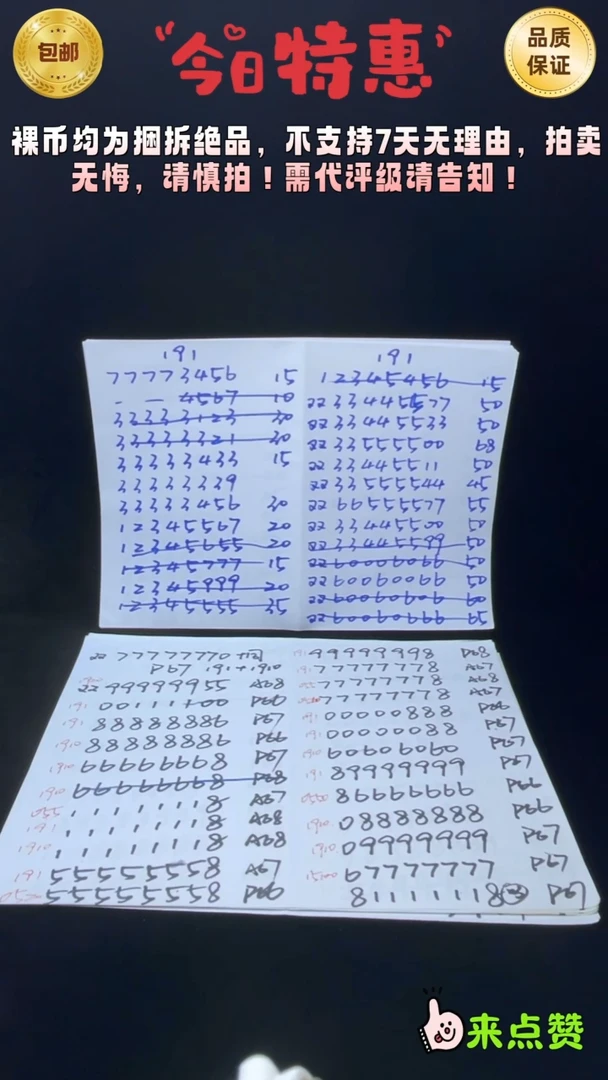 包邮
今日特惠
品质
保证
裸币均为捆拆绝品，不支持7天无理由，拍卖
无悔，请慎拍！需代评级请告知！
191
77773456 15
— — 4567 10
33333123 30
33333321 30
33333433 15
33333339
33333456 30
12345567 20
12345655 20
12345777 15
12345999 20
12345555 35
191
12345456 15
2233445577 50
2233445533 50
2233555500 68
2233445511 50
2233555544 45
2266555577 55
2233445500 50
2233445599 50
2260060066 50
2260060066 50
2260060606 60
2260060666 65
22 77777770
P67 191+1910
22 99999955 A68
191 00111100 P66
191 88888886 P67
1910 88888886 P66
1910 66666668 P67
1910 66666668 P68
11111118 A67
191 11111118 A68
1910 11111118 A68
191 55555558 A67
55555558 P66
191 99999998 P68
191 77777778 A67
77777778 A68
77777778 A67
191 00000888 P67
191 00000088 P67
1910 60606060 P67
191 89999999 P67
86666666 P66
1910 08888888 P66
1910 09999999 P67
67777777 P67
81111118 P67
来点赞